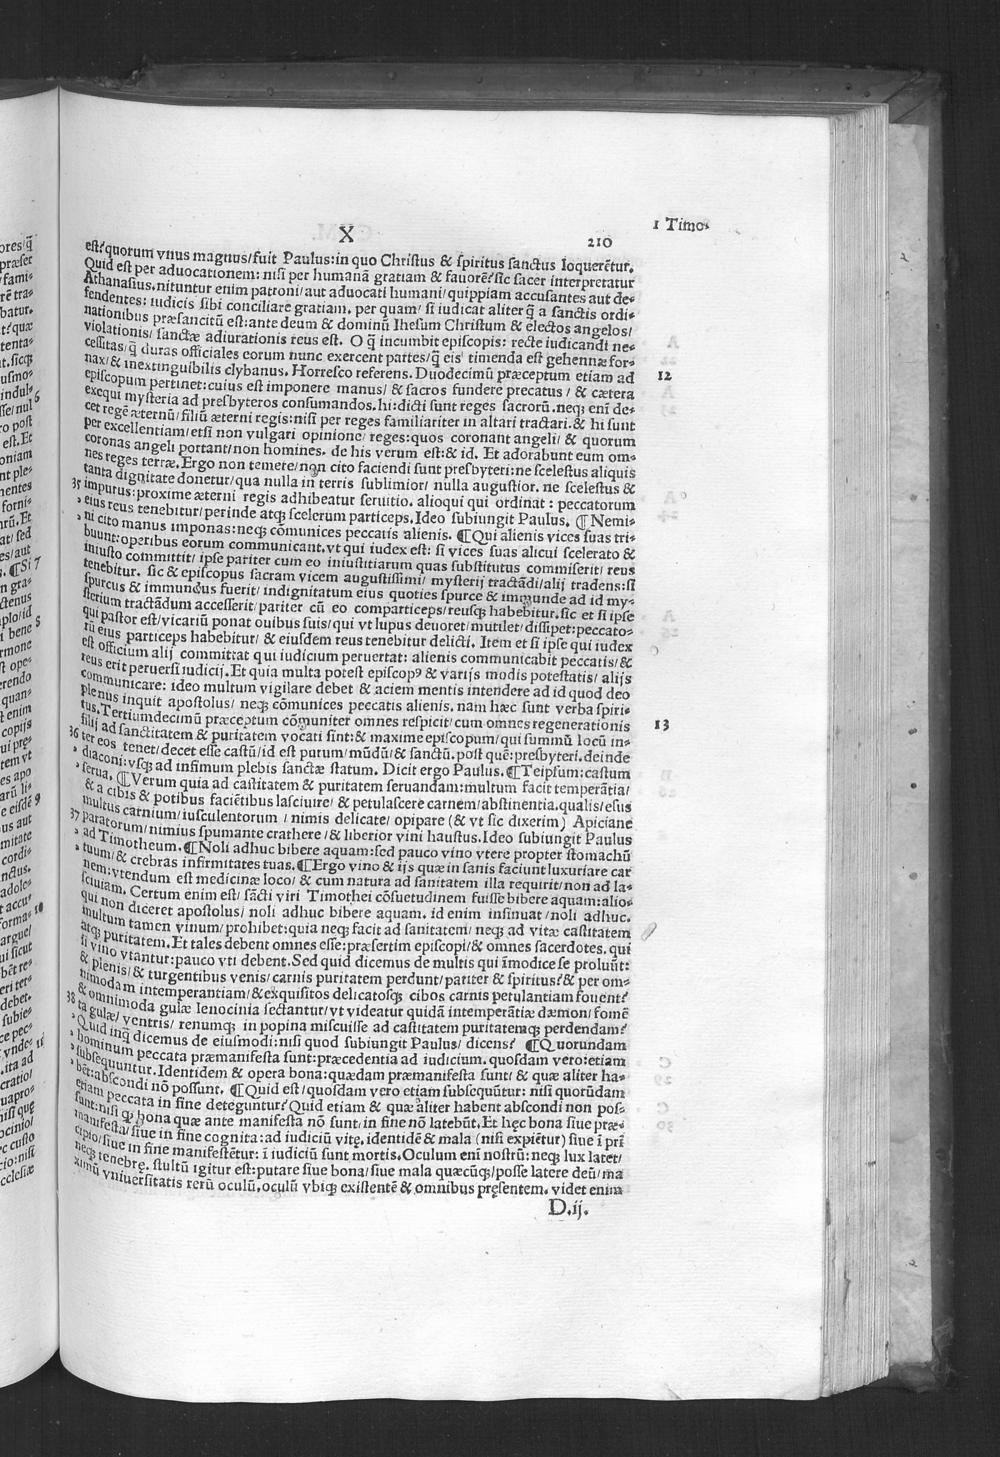 1 Timo.
X
210
est? quorum vnus magnus/fuit Paulus: in quo Christus & spiritus sanctus loquerētur.
Quid est per aduocationem: nisi per humanā gratiam & fauorē? sic sacer interpretatur
Athanasius. nituntur enim patroni/aut aduocati humani/quippiam accusantes aut de-
fendentes: iudicis sibi conciliare gratiam. per quam/ si iudicat aliter q̄ a sanctis ordi-
nationibus præsancitū est: ante deum & dominū Ihesum Christum & electos angelos/
violationis/ sanctæ adiurationis reus est. O q̄ incumbit episcopis: recte iudicandi ne-
cessitas/q̄ duras officiales eorum nunc exercent partes/q̄ eis timenda est gehennæ for-
nax/& inextinguibilis clybanus. Horresco referens. Duodecimū præceptum etiam ad
12
episcopum pertinet: cuius est imponere manus/ & sacros fundere precatus / & cætera
exequi mysteria ad presbyteros consumandos. hi: dicti sunt reges sacrorū. neqꝫ enī de-
cet regē æternū/filiū æterni regis: nisi per reges familiariter in altari tractari. & hi sunt
per excellentiam/etsi non vulgari opinione/ reges: quos coronant angeli/ & quorum
coronas angeli portant/non homines. de his verum est: & id. Et adorabunt eum om-
nes reges terræ. Ergo non temere/non cito faciendi sunt presbyteri: ne scelestus aliquis
tanta dignitate donetur/qua nulla in terris sublimior/ nulla augustior. ne scelestus &
35 impurus: proxime æterni regis adhibeatur seruitio. alioqui qui ordinat : peccatorum
„ eius reus tenebitur/perinde atqꝫ scelerum particeps. Ideo subiungit Paulus. ¶ Nemi-
„ ni cito manus imponas: neqꝫ cōmunices peccatis alienis. ¶ Qui alienis vices suas tri-
buunt: operibus eorum communicant. vt qui iudex est: si vices suas alicui scelerato &
iniusto committit/ ipse pariter cum eo iniustitiarum quas substitutus commiserit/ reus
tenebitur. sic & episcopus sacram vicem augustissimi/ mysterij tractādi/alij tradens: si
spurcus & immundus fuerit/ indignitatum eius quoties spurce & immunde ad id my-
sterium tractādum accesserit/pariter cū eo comparticeps/reusqꝫ habebitur. sic et si ipse
qui pastor est/vicariū ponat ouibus suis/qui vt lupus deuoret/mutilet/dissipet: peccato-
rū eius particeps habebitur/ & eiusdem reus tenebitur delicti. Item et si ipse qui iudex
est officium alij committat qui iudicium peruertat: alienis communicabit peccatis/&
reus erit peruersi iudicij. Et quia multa potest episcopꝰ & varijs modis potestatis/ alijs
communicare: ideo multum vigilare debet & aciem mentis intendere ad id quod deo
plenus inquit apostolus/ neqꝫ cōmunices peccatis alienis. nam hæc sunt verba spiri-
tus. Tertiumdecimū præceptum cōmuniter omnes respicit/cum omnes regenerationis
13
filij ad sanctitatem & puritatem vocati sint: & maxime episcopum/qui summū locū in-
36 ter eos tenet/decet esse castū/id est purum/mūdū/& sanctū. post quē: presbyteri. deinde
„ diaconi: vsqꝫ ad infimum plebis sanctæ statum. Dicit ergo Paulus. ¶ Teipsum: castum
„ serua. ¶ Verum quia ad castitatem & puritatem seruandam: multum facit temperātia/
& a cibis & potibus faciētibus lasciuire/ & petulascere carnem/abstinentia. qualis/esus
multus carnium/iusculentorum / nimis delicate/ opipare (& vt sic dixerim) Apiciane
37 paratorum/nimius spumante crathere/& liberior vini haustus. Ideo subiungit Paulus
„ ad Timotheum. ¶ Noli adhuc bibere aquam: sed pauco vino vtere propter stomachū
„ tuum/& crebras infirmitates tuas. ¶ Ergo vino & ijs quæ in sanis faciunt luxuriare car
nem: vtendum est medicinæ loco/ & cum natura ad sanitatem illa requirit/non ad la-
sciuiam. Certum enim est/ sācti viri Timothei cōsuetudinem fuisse bibere aquam: alio-
qui non diceret apostolus/ noli adhuc bibere aquam. id enim insinuat/noli adhuc.
multum tamen vinum/prohibet: quia neqꝫ facit ad sanitatem/ neqꝫ ad vitæ castitatem
atqꝫ puritatem. Et tales debent omnes esse: præsertim episcopi/& omnes sacerdotes. qui
si vino vtantur: pauco vti debent. Sed quid dicemus de multis qui īmodice se proluūt:
& plenis/& turgentibus venis/carnis puritatem perdunt/pariter & spiritus? & per om-
nimodam intemperantiam/&exquisitos delicatosqꝫ cibos carnis petulantiam fouent?
& omnimoda gulæ lenocinia sectantur/vt videatur quidā intemperātiæ dæmon/fomē
38 ta gulæ/ ventris/ renumqꝫ in popina miscuisse ad castitatem puritatemqꝫ perdendam?
„ Quid inq̄ dicemus de eiusmodi: nisi quod subiungit Paulus/ dicens? ¶ Quorundam
„ hominum peccata præmanifesta sunt: præcedentia ad iudicium. quosdam vero: etiam
„ subsequuntur. Identidem & opera bona: quædam præmanifesta sunt/ & quæ aliter ha-
„ bēt: abscondi nō possunt. ¶ Quid est/quosdam vero etiam subsequūtur: nisi quorūdam
etiam peccata in fine deteguntur? Quid etiam & quæ aliter habent abscondi non pos-
sunt: nisi qꝫ bona quæ ante manifesta nō sunt/in fine nō latebūt. Et hęc bona siue præ-
manifesta/siue in fine cognita: ad iudiciū vitę. identidē & mala (nisi expiētur) siue ī prī
cipio/siue in fine manifestētur: ī iudiciū sunt mortis. Oculum enī nostrū: neqꝫ lux latet/
neqꝫ tenebrę. stultū igitur est: putare siue bona/siue mala quæcūqꝫ/posse latere deū/ma
ximū vniuersitatis rerū oculū. oculū vbiqꝫ existentē & omnibus pręsentem. videt enim
D.ij.